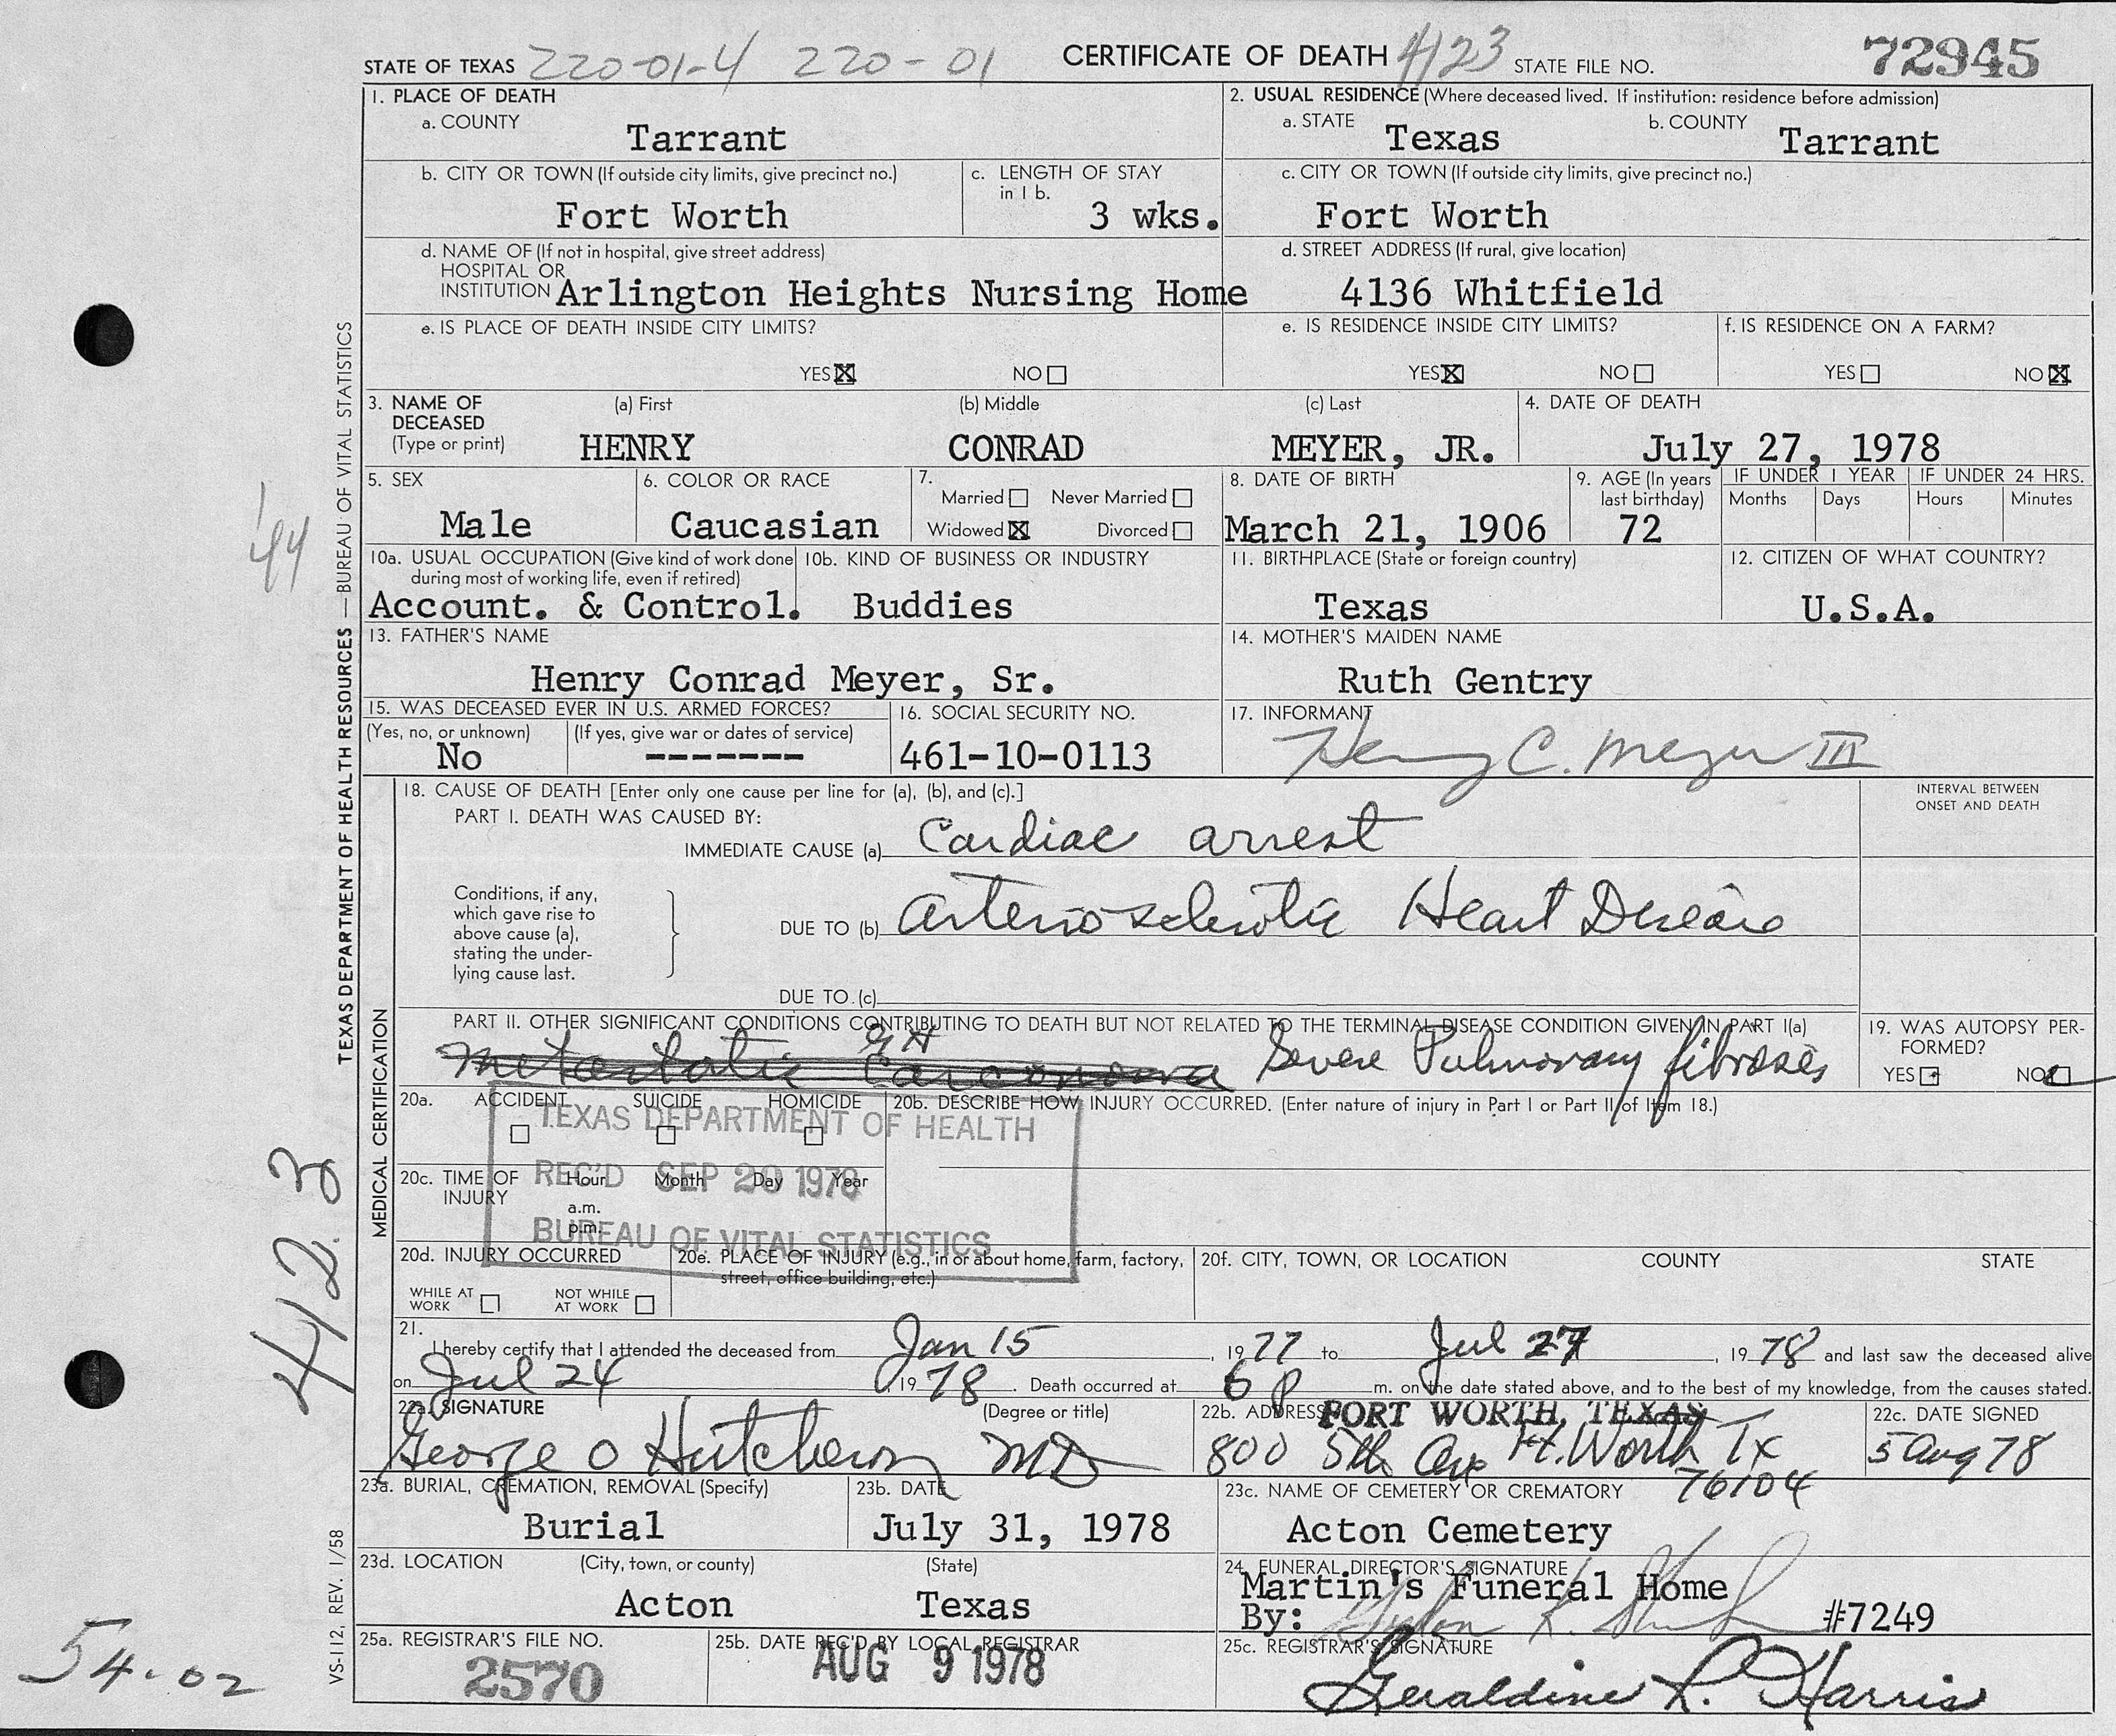 STATE OF TEXAS 220-01-4 220-01 CERTIFICATE OF DEATH 4123 STATE FILE NO. 72945
1. PLACE OF DEATH
a. COUNTY Tarrant
2. USUAL RESIDENCE (Where deceased lived. If institution: residence before admission)
a. STATE Texas b. COUNTY Tarrant
b. CITY OR TOWN (If outside city limits, give precinct no.)
Fort Worth
c. LENGTH OF STAY
in 1 b.
3 wks.
c. CITY OR TOWN (If outside city limits, give precinct no.)
Fort Worth
d. NAME OF (If not in hospital, give street address)
HOSPITAL OR
INSTITUTION Arlington Heights Nursing Home
d. STREET ADDRESS (If rural, give location)
4136 Whitfield
e. IS PLACE OF DEATH INSIDE CITY LIMITS?
YES ☒ NO ☐
e. IS RESIDENCE INSIDE CITY LIMITS?
YES ☒ NO ☐
f. IS RESIDENCE ON A FARM?
YES ☐ NO ☒
3. NAME OF
DECEASED
(Type or print)
(a) First (b) Middle (c) Last
HENRY CONRAD MEYER, JR.
4. DATE OF DEATH
July 27, 1978
5. SEX
Male
6. COLOR OR RACE
Caucasian
7.
Married ☐ Never Married ☐
Widowed ☒ Divorced ☐
8. DATE OF BIRTH
March 21, 1906
9. AGE (In years
last birthday)
72
IF UNDER 1 YEAR
Months Days
IF UNDER 24 HRS.
Hours Minutes
10a. USUAL OCCUPATION (Give kind of work done
during most of working life, even if retired)
Account. & Control.
10b. KIND OF BUSINESS OR INDUSTRY
Buddies
11. BIRTHPLACE (State or foreign country)
Texas
12. CITIZEN OF WHAT COUNTRY?
U.S.A.
13. FATHER'S NAME
Henry Conrad Meyer, Sr.
14. MOTHER'S MAIDEN NAME
Ruth Gentry
15. WAS DECEASED EVER IN U.S. ARMED FORCES?
(Yes, no, or unknown) (If yes, give war or dates of service)
No -------
16. SOCIAL SECURITY NO.
461-10-0113
17. INFORMANT
Henry C. Meyer III
18. CAUSE OF DEATH [Enter only one cause per line for (a), (b), and (c).]
PART I. DEATH WAS CAUSED BY:
IMMEDIATE CAUSE (a) Cardiac arrest
INTERVAL BETWEEN
ONSET AND DEATH
Conditions, if any,
which gave rise to
above cause (a),
stating the under-
lying cause last.
DUE TO (b) Arteriosclerotic Heart Disease
DUE TO (c)
PART II. OTHER SIGNIFICANT CONDITIONS CONTRIBUTING TO DEATH BUT NOT RELATED TO THE TERMINAL DISEASE CONDITION GIVEN IN PART I(a)
GH
Metastatic Carcinoma Severe Pulmonary fibrosis
19. WAS AUTOPSY PER-
FORMED?
YES ☐ NO ☐
20a. ACCIDENT SUICIDE HOMICIDE
20b. DESCRIBE HOW INJURY OCCURRED. (Enter nature of injury in Part I or Part II of Item 18.)
TEXAS DEPARTMENT OF HEALTH
REC'D SEP 20 1978
BUREAU OF VITAL STATISTICS
20c. TIME OF
INJURY
Hour Month Day Year
a.m.
p.m.
20d. INJURY OCCURRED
WHILE AT
WORK ☐
NOT WHILE
AT WORK ☐
20e. PLACE OF INJURY (e.g., in or about home, farm, factory,
street, office building, etc.)
20f. CITY, TOWN, OR LOCATION COUNTY STATE
21.
I hereby certify that I attended the deceased from Jan 15, 1977 to Jul 27, 1978 and last saw the deceased alive
on Jul 24, 1978. Death occurred at 6 P m. on the date stated above, and to the best of my knowledge, from the causes stated.
22a. SIGNATURE (Degree or title)
George O Hutcheson MD
22b. ADDRESS FORT WORTH, TEXAS
800 5th Ave Ft. Worth Tx
76104
22c. DATE SIGNED
5 Aug 78
23a. BURIAL, CREMATION, REMOVAL (Specify)
Burial
23b. DATE
July 31, 1978
23c. NAME OF CEMETERY OR CREMATORY
Acton Cemetery
23d. LOCATION (City, town, or county) (State)
Acton Texas
24. FUNERAL DIRECTOR'S SIGNATURE
Martin's Funeral Home
By: #7249
25a. REGISTRAR'S FILE NO.
2570
25b. DATE REC'D BY LOCAL REGISTRAR
AUG 9 1978
25c. REGISTRAR'S SIGNATURE
Geraldine L. Harris
TEXAS DEPARTMENT OF HEALTH RESOURCES — BUREAU OF VITAL STATISTICS
MEDICAL CERTIFICATION
VS-112, REV. 1/58
442.3
54.02